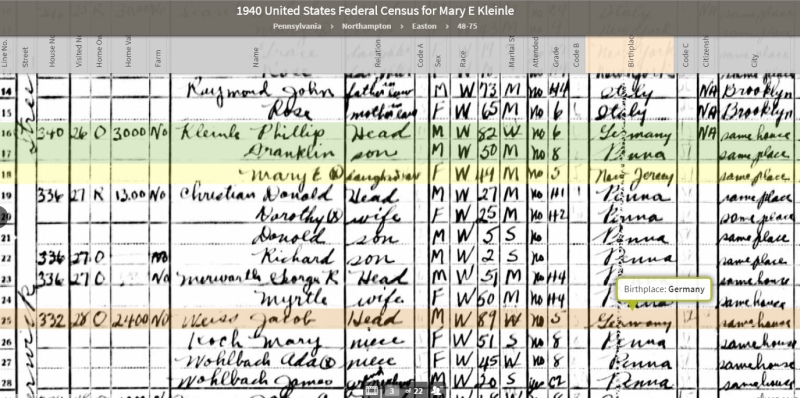 1940 United States Federal Census for Mary E Kleinle
Pennsylvania > Northampton > Easton > 48-75
Line No. Street House No Visited N Home O Home Val Farm Name Relation Code A Sex Race Age Marital S Attended Grade Code B Birthplace Code C Citizenshi City
14 Raymond John father in law M W 73 M No H4 Italy NA Brooklyn
15 Rose mother in law F W 65 M no 6 Italy NA Brooklyn
16 340 26 O 3000 No Kleinle Phillip Head M W 82 W no 6 Germany NA same house
17 Franklin son M W 50 M no 8 Penna same place
18 Mary E F W 44 M no 5 New Jersey same place
19 336 27 R 13.00 No Christian Donald Head M W 27 M no H1 Penna same place
20 Dorothy wife F W 25 M no H2 Penna same place
21 Donald son M W 5 S no Penna same place
22 336 27 O No Richard son M W 2 S no Penna same place
23 336 27 O George R Head M W 51 M no H4 same house
24 Myrtle wife F W 50 M no H4 same house
Birthplace: Germany
25 332 28 O 2400 No Weiss Jacob Head M W 89 W no 5 Germany same house
26 Koch Mary niece F W 51 S no 8 Penna same house
27 Wohlbach Ada niece F W 45 W no 8 Penna same house
28 Wohlbach James M W 20 S yes C2 Penna same house
3 of 22